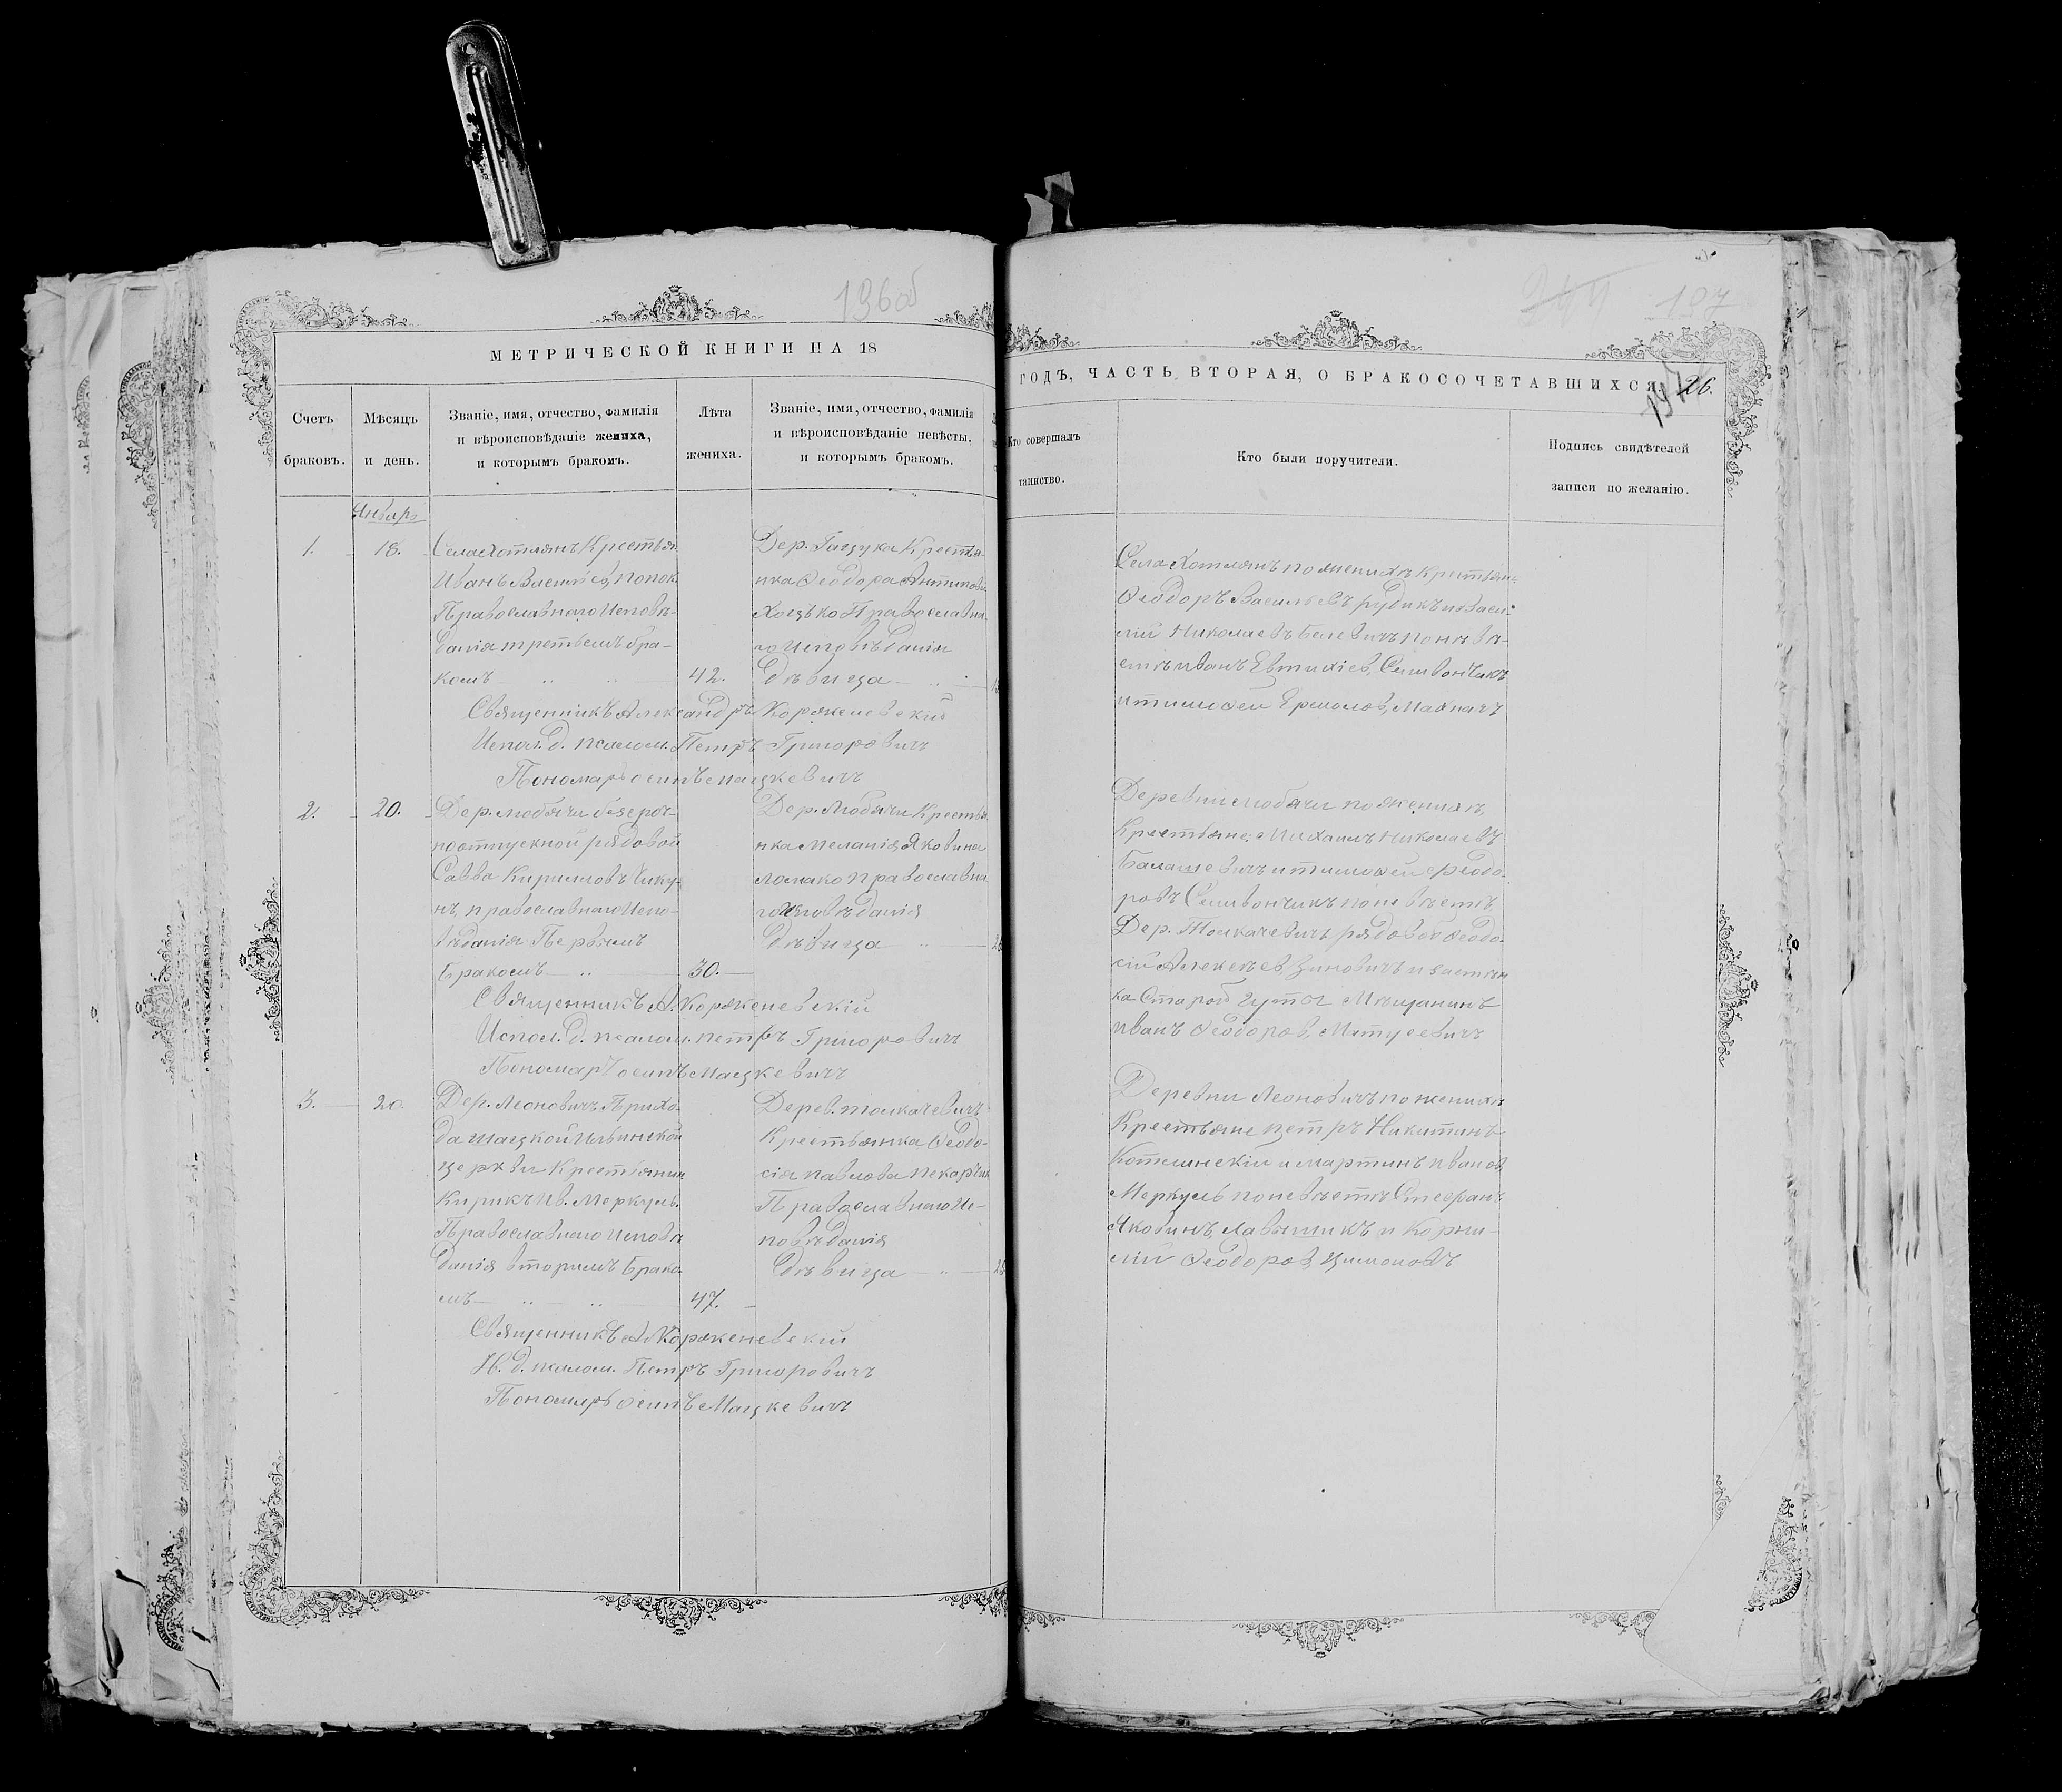 196об
МЕТРИЧЕСКОЙ КНИГИ НА 18
Счетъ браковъ.
Мѣсяцъ и день.
Званіе, имя, отчество, фамилія и вѣроисповѣданіе жениха, и которымъ бракомъ.
Лѣта жениха.
Званіе, имя, отчество, фамилія и вѣроисповѣданіе невѣсты, и которымъ бракомъ.
Январь
1.
18.
Села Хотлянъ Крестьян.
Иванъ Васильевъ Попок
Православнаго Исповѣ-
данія третьемъ бра-
комъ
42.
Дер. Гацука Крестьян-
нка Ѳеодора Антипова
Хоцько Православна-
го Исповѣданія
Дѣвица
Священникъ Александръ Корженевскій
Испол. д. псалом. Петръ Григоровичъ
Пономарь Осипъ Мацкевичъ
2.
20.
Дер. Любячи безсроч-
ноотпускной рядовой
Савва Кирилловъ Чику-
нъ, православнаго Испо-
вѣданія Первымъ
Бракомъ
30.
Дер. Любячи Крестья-
нка Меланія Яковина
Ломако Православна-
го Исповѣданія
Дѣвица
Священникъ А. Корженевскій
Испол. д. псалом. Петръ Григоровичъ
Пономарь Осипъ Мацкевичъ
3.
20.
Дер. Леоновичъ Прихо-
да Шацкой Ильинской
церкви Крестьянин
Кирикъ Ив. Меркуль.
Православнаго Исповѣ
данія вторымъ Брако-
мъ
47.
Дерев. Толкачевичъ
Крестьянка Ѳеодо-
сія Павлова Пекарчик
Православнаго Ис-
повѣданія
Дѣвица
Священникъ А. Корженевскій
И. д. псалом. Петръ Григоровичъ
Пономарь Осипъ Мацкевичъ
197
ГОДЪ, ЧАСТЬ ВТОРАЯ, О БРАКОСОЧЕТАВШИХСЯ
26.
Кто совершалъ таинство.
Кто были поручители.
Подпись свидѣтелей записи по желанію.
Села Хотлянъ по женихѣ Крестьян-
Ѳеодоръ Васильевъ Рудикъ и Васи-
лій Николаевъ Белевичъ по невѣ-
стѣ Иванъ Евтихіев, Силивончикъ
и Тимоѳей Ермолов,
Деревни Любячи по женихѣ
Крестьяне: Михаилъ Николаевъ
Балашевичъ и Тимоѳей Ѳеодо-
ровъ Силивончикъ по невѣстѣ
Дер. Толкачевичъ рядовой Ѳеодо-
сій Алексѣев, Зиновичъ и застѣн
ка Старой Гуты Мѣщанинъ
Иванъ Ѳеодоров, Матусевичъ
Деревни Леоновичъ по женихѣ
Крестьяне Петръ Никитинъ
Котлинскій и Мартинъ Иванов,
Меркуль по невѣстѣ Стефанъ
Яковинъ Лавышикъ и Корни-
лій Ѳеодоров, Цимоновъ